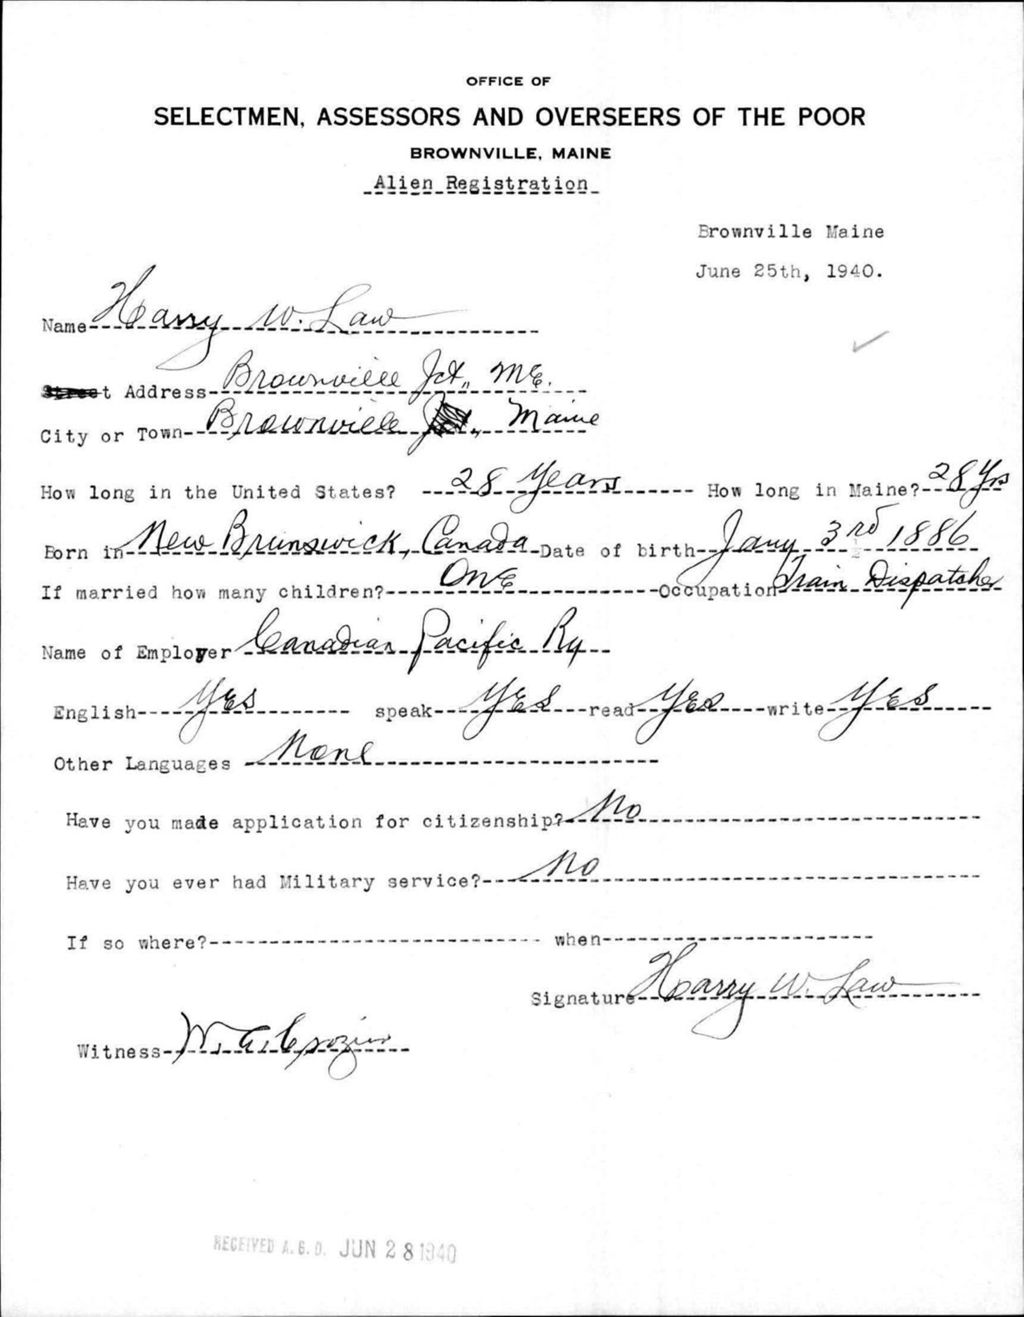 OFFICE OF
SELECTMEN, ASSESSORS AND OVERSEERS OF THE POOR
BROWNVILLE, MAINE
Alien Registration
Brownville Maine
June 25th, 1940.
Name Harry W. Law
Street Address Brownville Jct., ME.
City or Town Brownville Jct., Maine
How long in the United States? 28 Years How long in Maine? 28 Yrs
Born in New Brunswick, Canada Date of birth Jany 3rd 1886
If married how many children? ONE Occupation Train Dispatcher
Name of Employer Canadian Pacific Ry
English Yes speak YES read Yes write YES
Other Languages None
Have you made application for citizenship? No
Have you ever had Military service? No
If so where? when
Signature Harry W. Law
Witness W. A. Crozier
RECEIVED A.G.O. JUN 28 1940